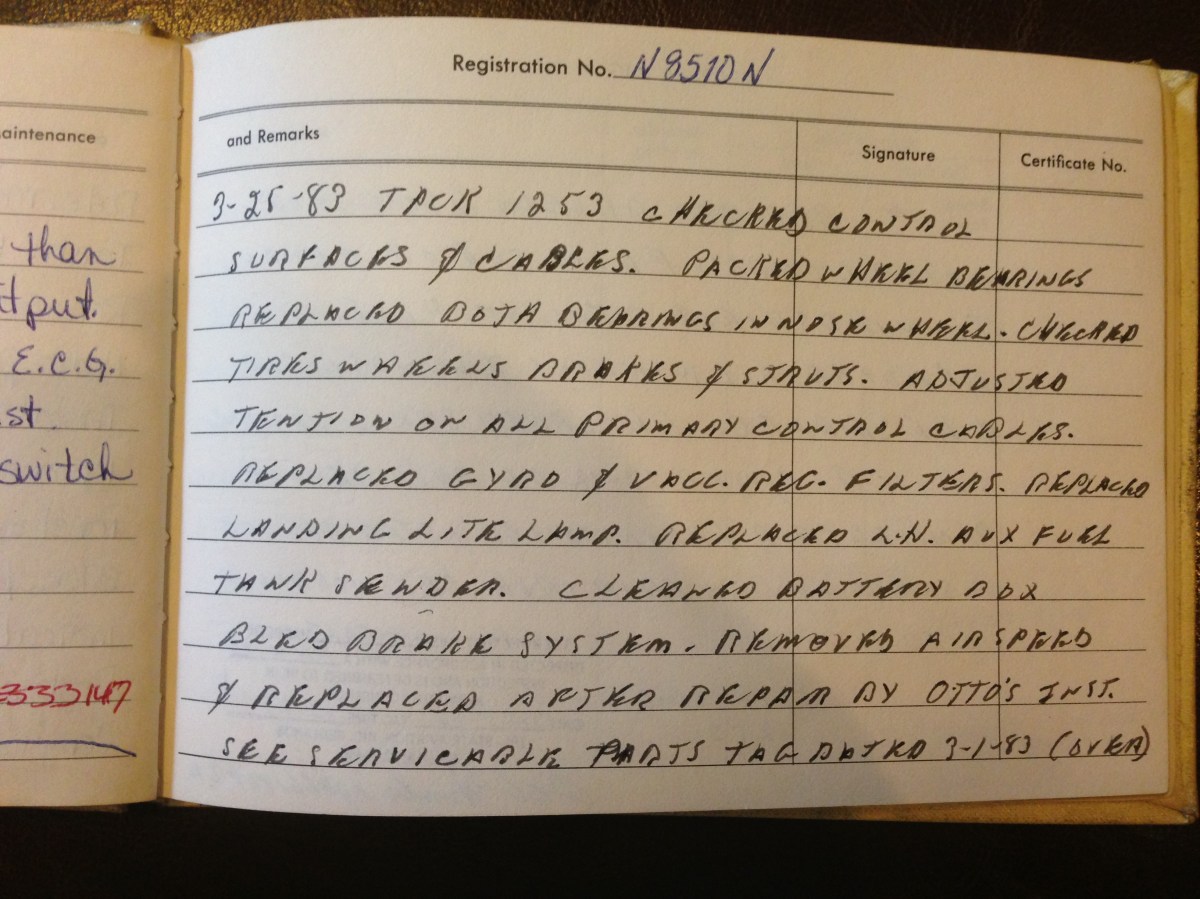 Registration No. N8510N
aintenance
and Remarks
Signature
Certificate No.
than
tput.
E.C.G.
st.
switch
333147
3-25-83 TACK 1253 CHECKED CONTROL
SURFACES & CABLES. PACKED WHEEL BEARINGS
REPLACED BOTH BEARINGS IN NOSE WHEEL. CHECKED
TIRES WHEELS BRAKES & STRUTS. ADJUSTED
TENTION ON ALL PRIMARY CONTROL CABLES.
REPLACED GYRO & VACC. REG. FILTERS. REPLACED
LANDING LITE LAMP. REPLACED L.H. AUX FUEL
TANK SENDER. CLEANED BATTERY BOX
BLED BRAKE SYSTEM. REMOVED AIRSPEED
& REPLACED AFTER REPAIR BY OTTO'S INST.
SEE SERVICABLE PARTS TAG DATED 3-1-83 (OVER)